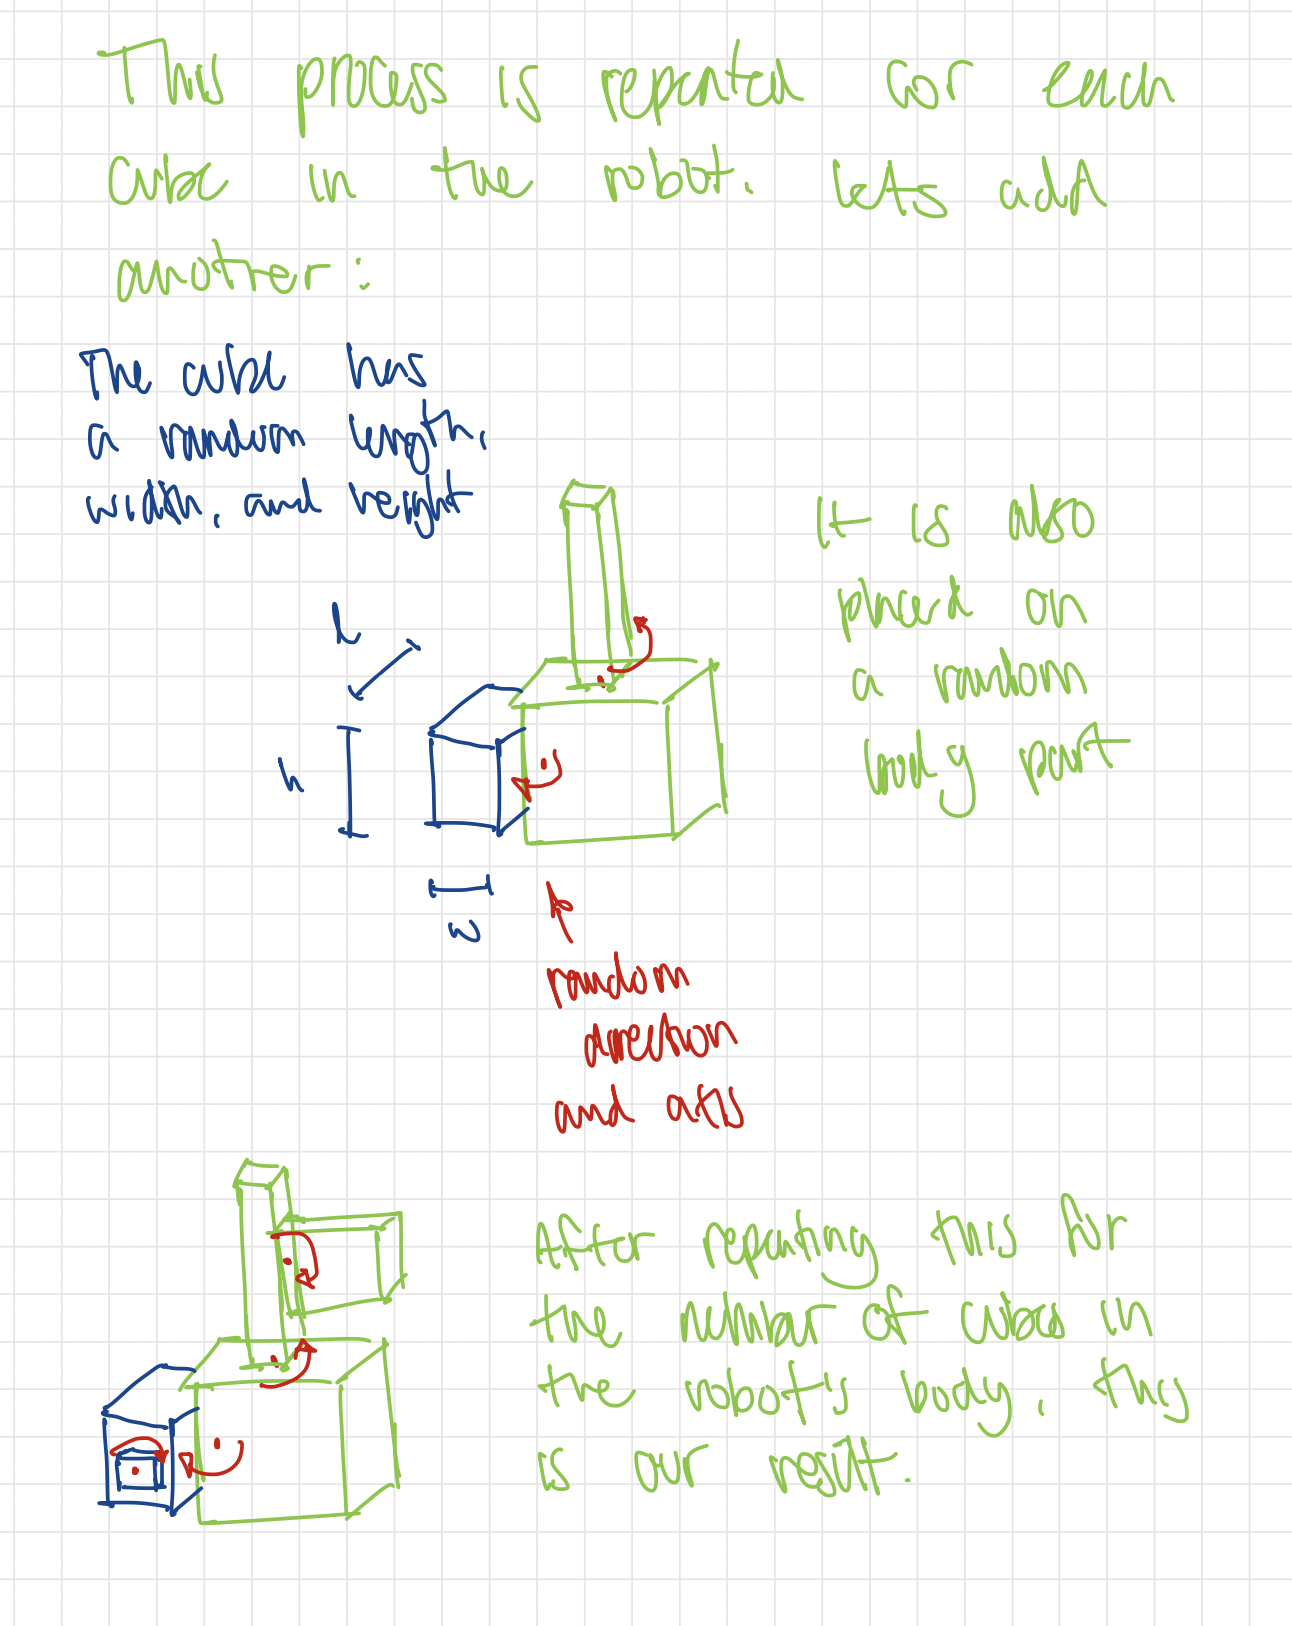 This process is repeated for each
cube in the robot. lets add
another:
The cube has
a random length,
width, and height
It is also
placed on
a random
body part
L
h
w
random
direction
and axis
After repeating this for
the number of cubes in
the robot's body, this
is our result.